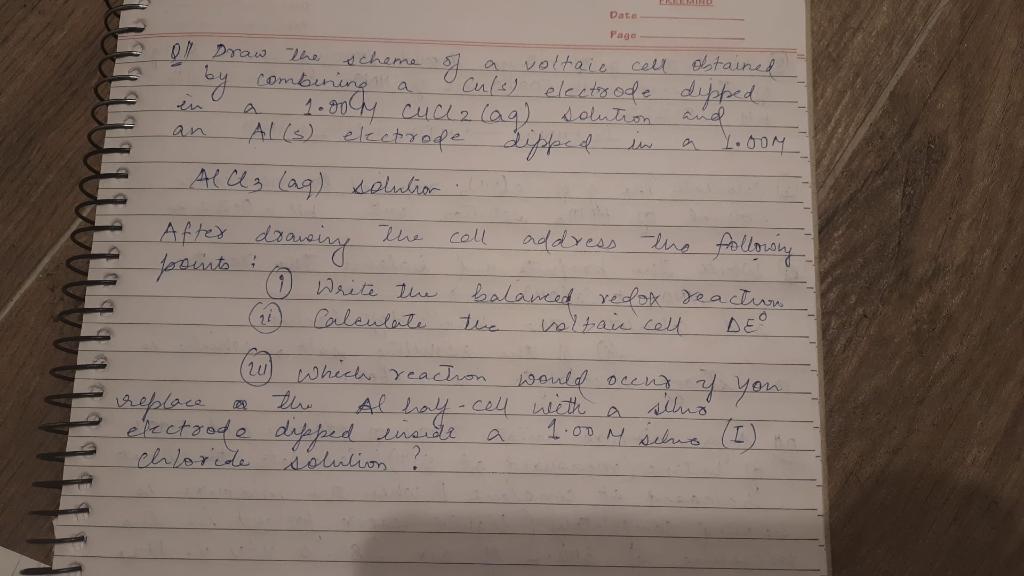 FREEMIND
Date
Page
Q1 Draw the scheme of a voltaic cell obtained
by combining a Cu(s) electrode dipped
in a 1.00 M CuCl2 (aq) solution and
an Al(s) electrode dipped in a 1.00M
AlCl3 (aq) solution.
After drawing the cell address the following
points :
(i) Write the balanced redox reaction
(ii) Calculate the voltaic cell ΔE°
(iii) Which reaction would occur if you
replace the Al half-cell with a silver
electrode dipped inside a 1.00 M silver (I)
chloride solution ?